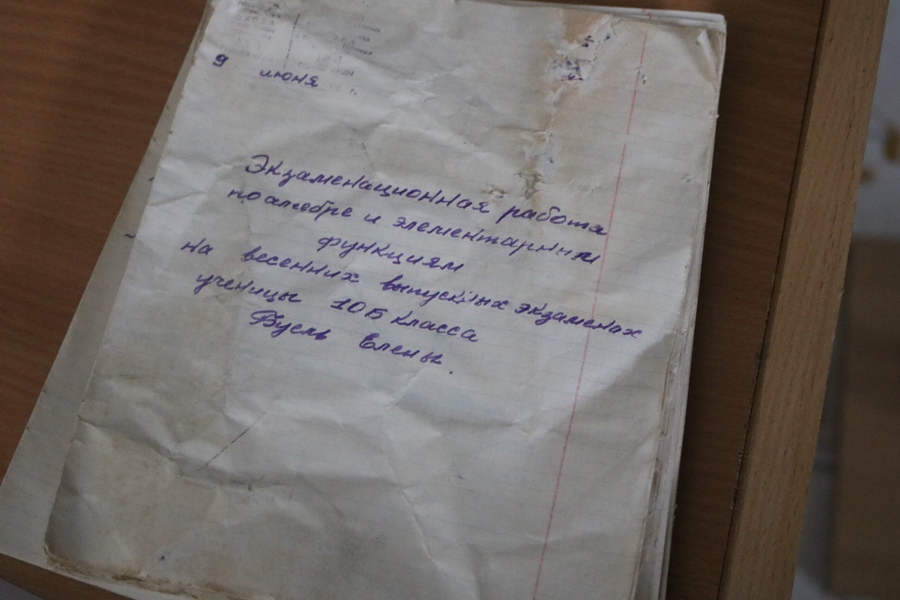 9 июня
Экзаменационная работа
по алгебре и элементарным
функциям
на весенних выпускных экзаменах
ученицы 10Б класса
Бусль Елены.